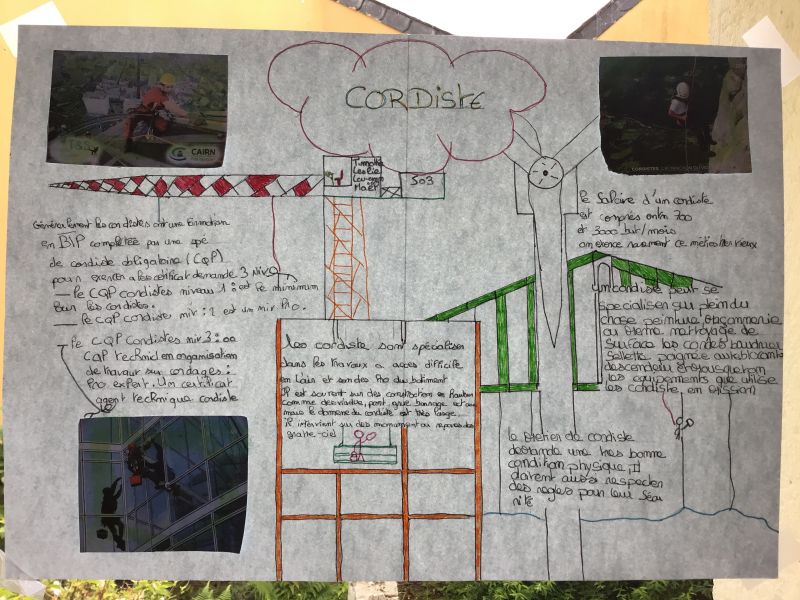 CORDISTE
T&S
CAIRN
Leslie
Maël
503
CORDISTES
Généralement les cordistes ont une formation
en BTP complétée par une
de cordiste obligatoire (CQP)
pour exercer certificat demande 3 niv
le CQP cordistes niveau 1: est le minimum
les cordistes.
le CQP cordiste niv: 2 est un niv Pro.
le CQP Cordistes niv 3:
CQP technici en organisation
de travaux sur cordages:
Pro expert. Un certificat
agent technique cordiste
les cordiste sont spécialiser
dans les travaux a accès difficile
en et son des Pro du batiment
Il est souvent sur des construction en hauteur
comme des viaduc, pont, grue barrage ect
mais le domaine du cordiste est très large.
Il intervient sur des monument ou
gratte-ciel
le Salaire d'un cordiste
est compris entre 700
et 3000 but/mois
on exerce rarement ce métier très vieux
un cordiste peut se
spécialiser sur plein du
chose peinture, maçonnerie
ou nettoyage de
surface les cordes baudrier
Sellette poignée autobloquante
descendeur
les équipements que utilise
les cordiste en
le métier de cordiste
demande une très bonne
condition physique, Il
doivent aussi respecter
des règles pour leur Sécu
rité